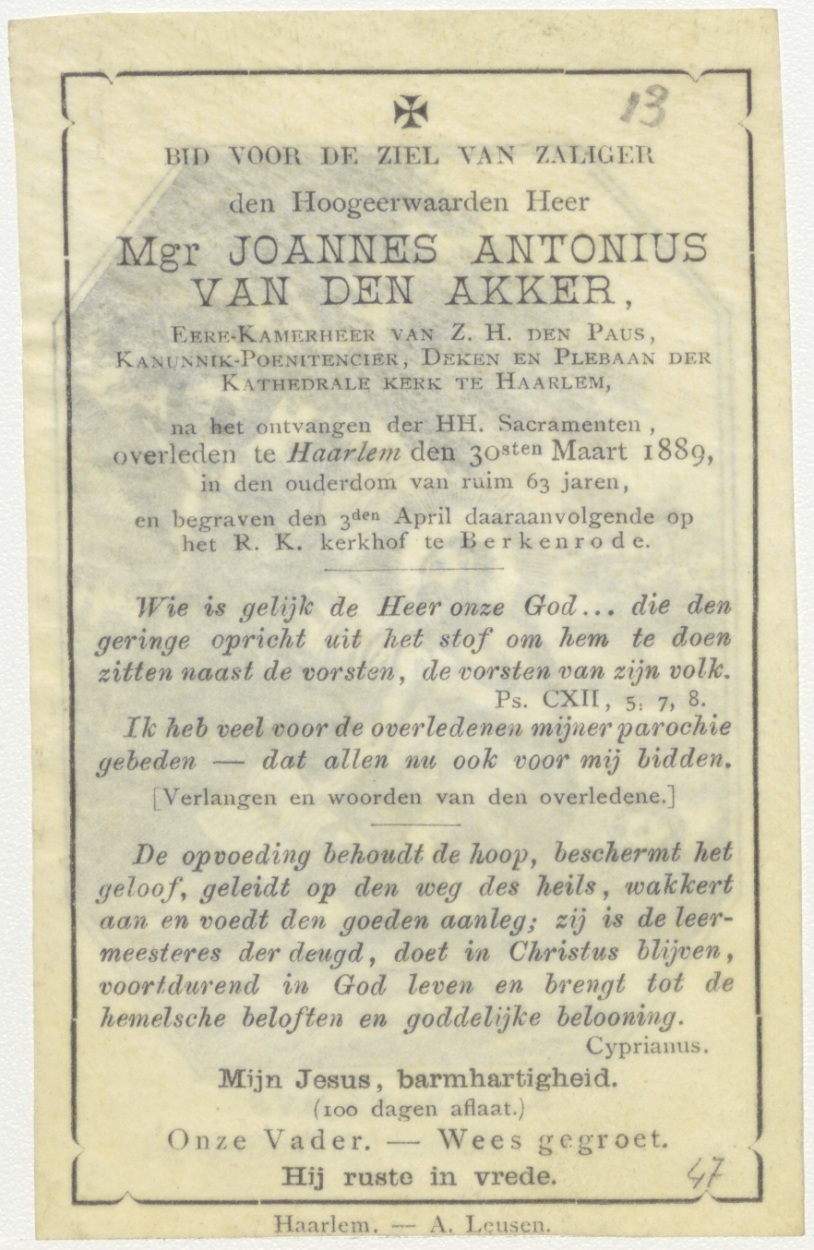 13
✠
BID VOOR DE ZIEL VAN ZALIGER
den Hoogeerwaarden Heer
Mgr JOANNES ANTONIUS
VAN DEN AKKER,
EERE-KAMERHEER VAN Z. H. DEN PAUS,
KANUNNIK-POENITENCIER, DEKEN EN PLEBAAN DER
KATHEDRALE KERK TE HAARLEM,
na het ontvangen der HH. Sacramenten,
overleden te Haarlem den 30sten Maart 1889,
in den ouderdom van ruim 63 jaren,
en begraven den 3den April daaraanvolgende op
het R. K. kerkhof te Berkenrode.
Wie is gelijk de Heer onze God... die den
geringe opricht uit het stof om hem te doen
zitten naast de vorsten, de vorsten van zijn volk.
Ps. CXII, 5; 7, 8.
Ik heb veel voor de overledenen mijner parochie
gebeden — dat allen nu ook voor mij bidden.
[Verlangen en woorden van den overledene.]
De opvoeding behoudt de hoop, beschermt het
geloof, geleidt op den weg des heils, wakkert
aan en voedt den goeden aanleg; zij is de leer-
meesteres der deugd, doet in Christus blijven,
voortdurend in God leven en brengt tot de
hemelsche beloften en goddelijke belooning.
Cyprianus.
Mijn Jesus, barmhartigheid.
(100 dagen aflaat.)
Onze Vader. — Wees gegroet.
Hij ruste in vrede.
47
Haarlem. — A. Leusen.